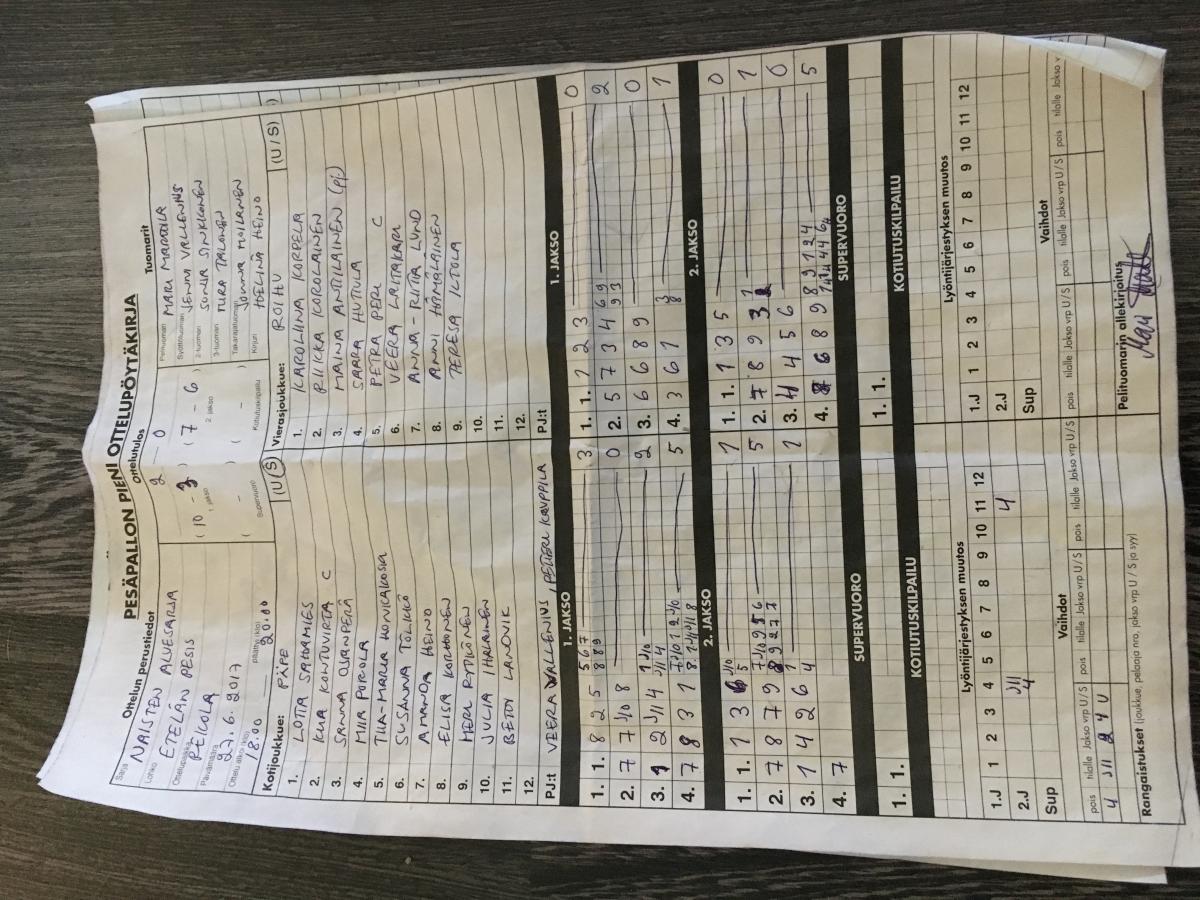 PESÄPALLON PIENI OTTELUPÖYTÄKIRJA
Ottelun perustiedot
Sarja NAISTEN ALUESARJA
Lohko ETELÄN PESIS
Ottelupaikka
Päivämäärä 27.6.2017
Ottelu alkoi (klo) 18.00 päättyi (klo) 20.00
Ottelutulos
2 - 0
( 10 - 3 ) ( 7 - 6 )
1. jakso 2. jakso
( - ) ( - )
Supervuoro Kotiutuskilpailu
Tuomarit
Pelituomari MARU MARTTILA
Syöttötuomari JENNI VALLENIUS
2-tuomari SONJA SINKKONEN
3-tuomari TUIRA TALONEN
Takarajatuomari JONNA MOILANEN
Kirjuri HELINÄ HEINO
Kotijoukkue: PÄPE (U/S)
1. LOTTA SAHAMIES
2. KUKA KONTUVIRTA C
3. SANNA OJANPERÄ
4. MIIA PORCOLA
5. TIIA-MARIA HONKALKOSKI
6. SUSANNA TÖLKKÖ
7. AMANDA HEINO
8. ELISA KORHONEN
9. MERU RYTILÖNEN
10. JULIA HALINEN
11. BETTY LANOVIK
12.
PJ:t VEERA WALLENIUS, PETTERI KAUPPILA
Vierasjoukkue: ROIHU (U/S)
1. KAROLIINA KORPELA
2. RIIKKA KOROLAINEN
3. MAINA ANTTILAINEN (pj)
4. SAARA HUTTULA
5. PETRA PERU C
6. VEERA LAITAKARI
7. ANNA-RIITTA LUND
8. ANNI HÄMÄLÄINEN
9. TERESA ILTOLA
10.
11.
12.
PJ:t
1. JAKSO
1. 1. 8 2 5 5 6 7 3
8 8 9
2. 7 7 J10 8 0
3. 1 2 J11 4 1 J10 2
J11 4
4. 7 8 3 1 8 5
1. JAKSO
1. 1. 1 2 3 0
2. 5 7 3 4 6 9 2
9 3
3. 6 6 8 9 0
4. 3 6 6 1 3 1
8
2. JAKSO
1. 1. 1 3 6 J10 1
5
2. 7 8 7 9 5
3. 1 4 2 6 4 1 1
4. 7
2. JAKSO
1. 1. 1 3 5 0
2. 7 8 9 3 1 1
3. 4 4 5 6 0
4. 6 8 9 8 9 1 2 4 5
SUPERVUORO
1. 1.
SUPERVUORO
1. 1.
KOTIUTUSKILPAILU
KOTIUTUSKILPAILU
Lyöntijärjestyksen muutos
1 2 3 4 5 6 7 8 9 10 11 12
1.J J11
2.J 4 4
Sup
Lyöntijärjestyksen muutos
1 2 3 4 5 6 7 8 9 10 11 12
1.J
2.J
Sup
Vaihdot
pois tilalle Jakso vrp U/S pois tilalle Jakso vrp U/S pois tilalle Jakso vrp U/S
4 J11 2 4 U
Vaihdot
pois tilalle Jakso vrp U/S pois tilalle Jakso vrp U/S pois tilalle Jakso v
Rangaistukset (joukkue, pelaaja nro, jakso vrp U/S ja syy)
Pelituomarin allekirjoitus